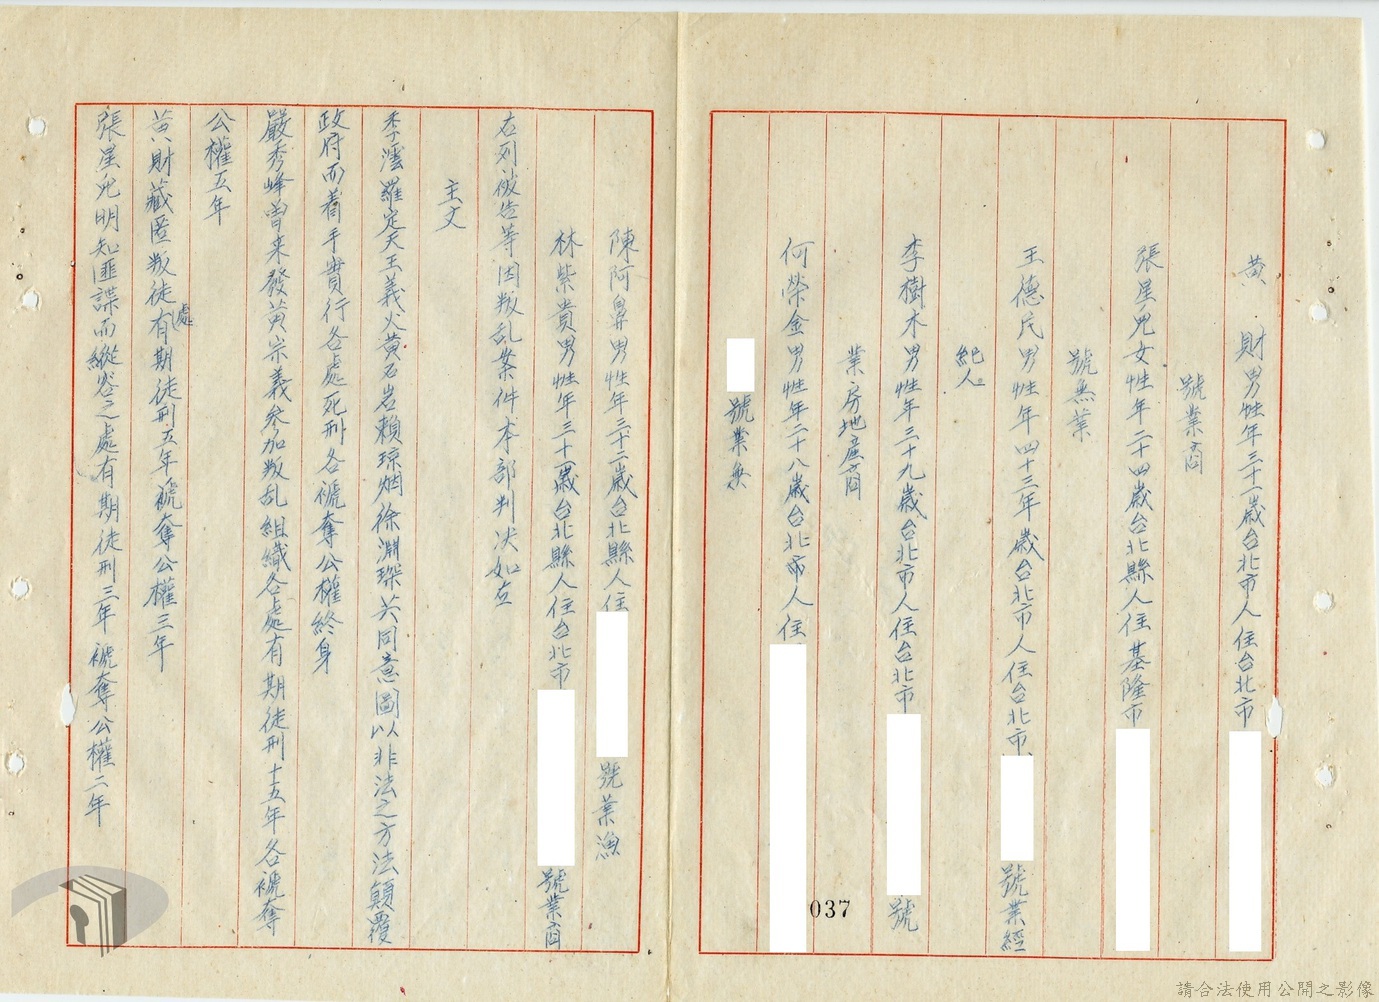 黄　財男性年三十一歲台北市人住台北市
號業商
張星兒女性年二十四歲台北縣人住基隆市
號無業
王德氏男性年四十三年歲台北市人住台北市
號業經
紀人
李樹木男性年三十九歲台北市人住台北市
號
業房地產商
何榮金男性年二十八歲台北市人住
號業無
陳阿鼻男性年三十二歲台北縣人住
號業漁
林紫貴男性年三十一歲台北縣人住台北市
號業商
右列被告等因叛乱案件本部判决如左
主文
李澐羅定天王義火黄石岩賴琼烟徐淵琛共同意圖以非法之方法顛覆
政府而着手實行各處死刑各褫奪公權終身
嚴秀峰曽来發黄宗義參加叛乱組織各處有期徒刑十五年各褫奪
公權五年
黄財藏匿叛徒處有期徒刑五年褫奪公權三年
張星兒明知匪諜而縱容之處有期徒刑三年褫奪公權二年
037
請合法使用公開之影像